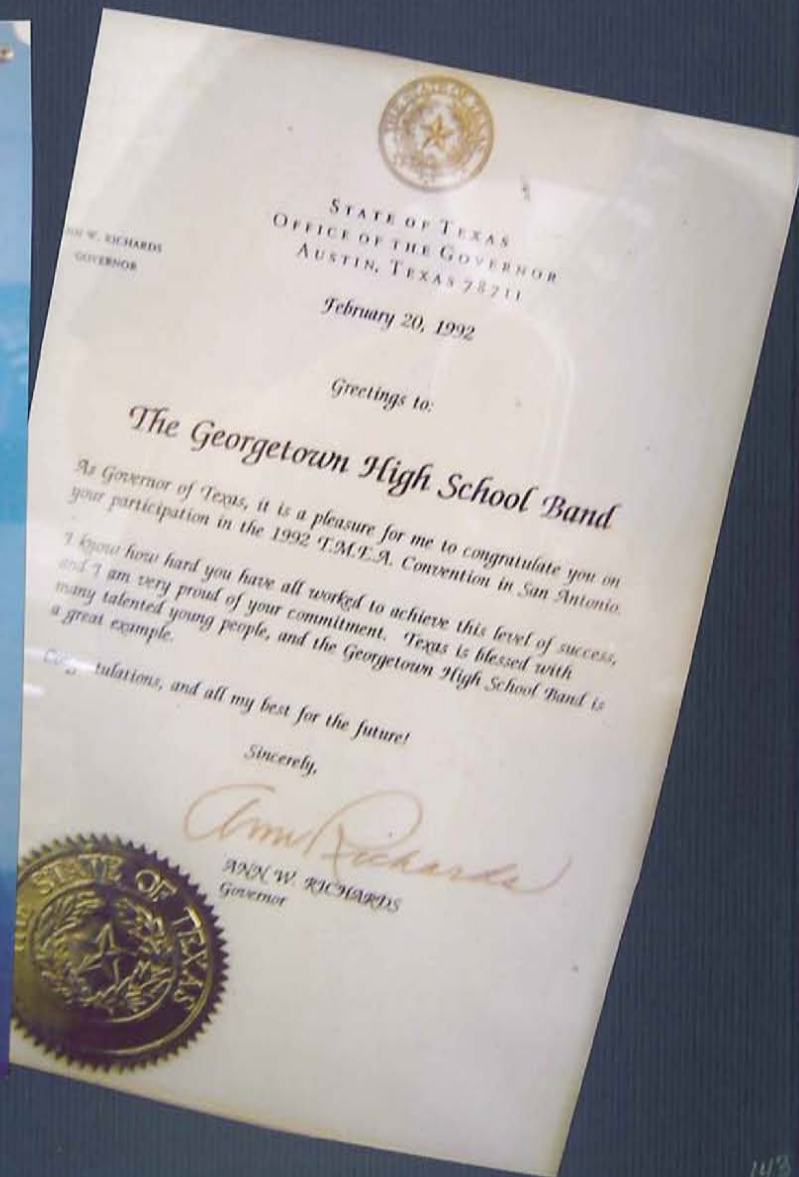 THE STATE OF TEXAS
STATE OF TEXAS
OFFICE OF THE GOVERNOR
AUSTIN, TEXAS 78711
W. RICHARDS
GOVERNOR
February 20, 1992
Greetings to:
The Georgetown High School Band
As Governor of Texas, it is a pleasure for me to congratulate you on
your participation in the 1992 T.M.E.A. Convention in San Antonio.
I know how hard you have all worked to achieve this level of success,
and I am very proud of your commitment. Texas is blessed with
many talented young people, and the Georgetown High School Band is
a great example.
tulations, and all my best for the future!
Sincerely,
Ann Richards
ANN W. RICHARDS
Governor
THE STATE OF TEXAS
143